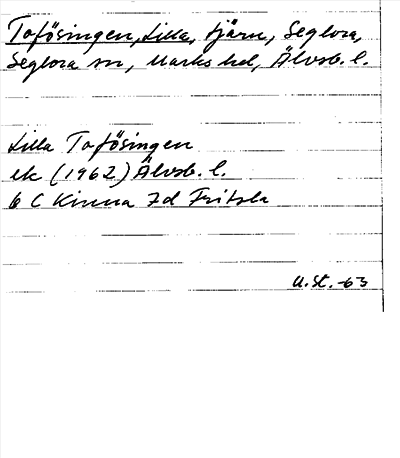 Tofösingen, Lilla, tjärn, Seglora,
Seglora sn, Marks hd, Älvsb. l.
Lilla Tofösingen
ek (1962) Älvsb. l.
6 C Kinna 7d Fritsla
U. St. -63